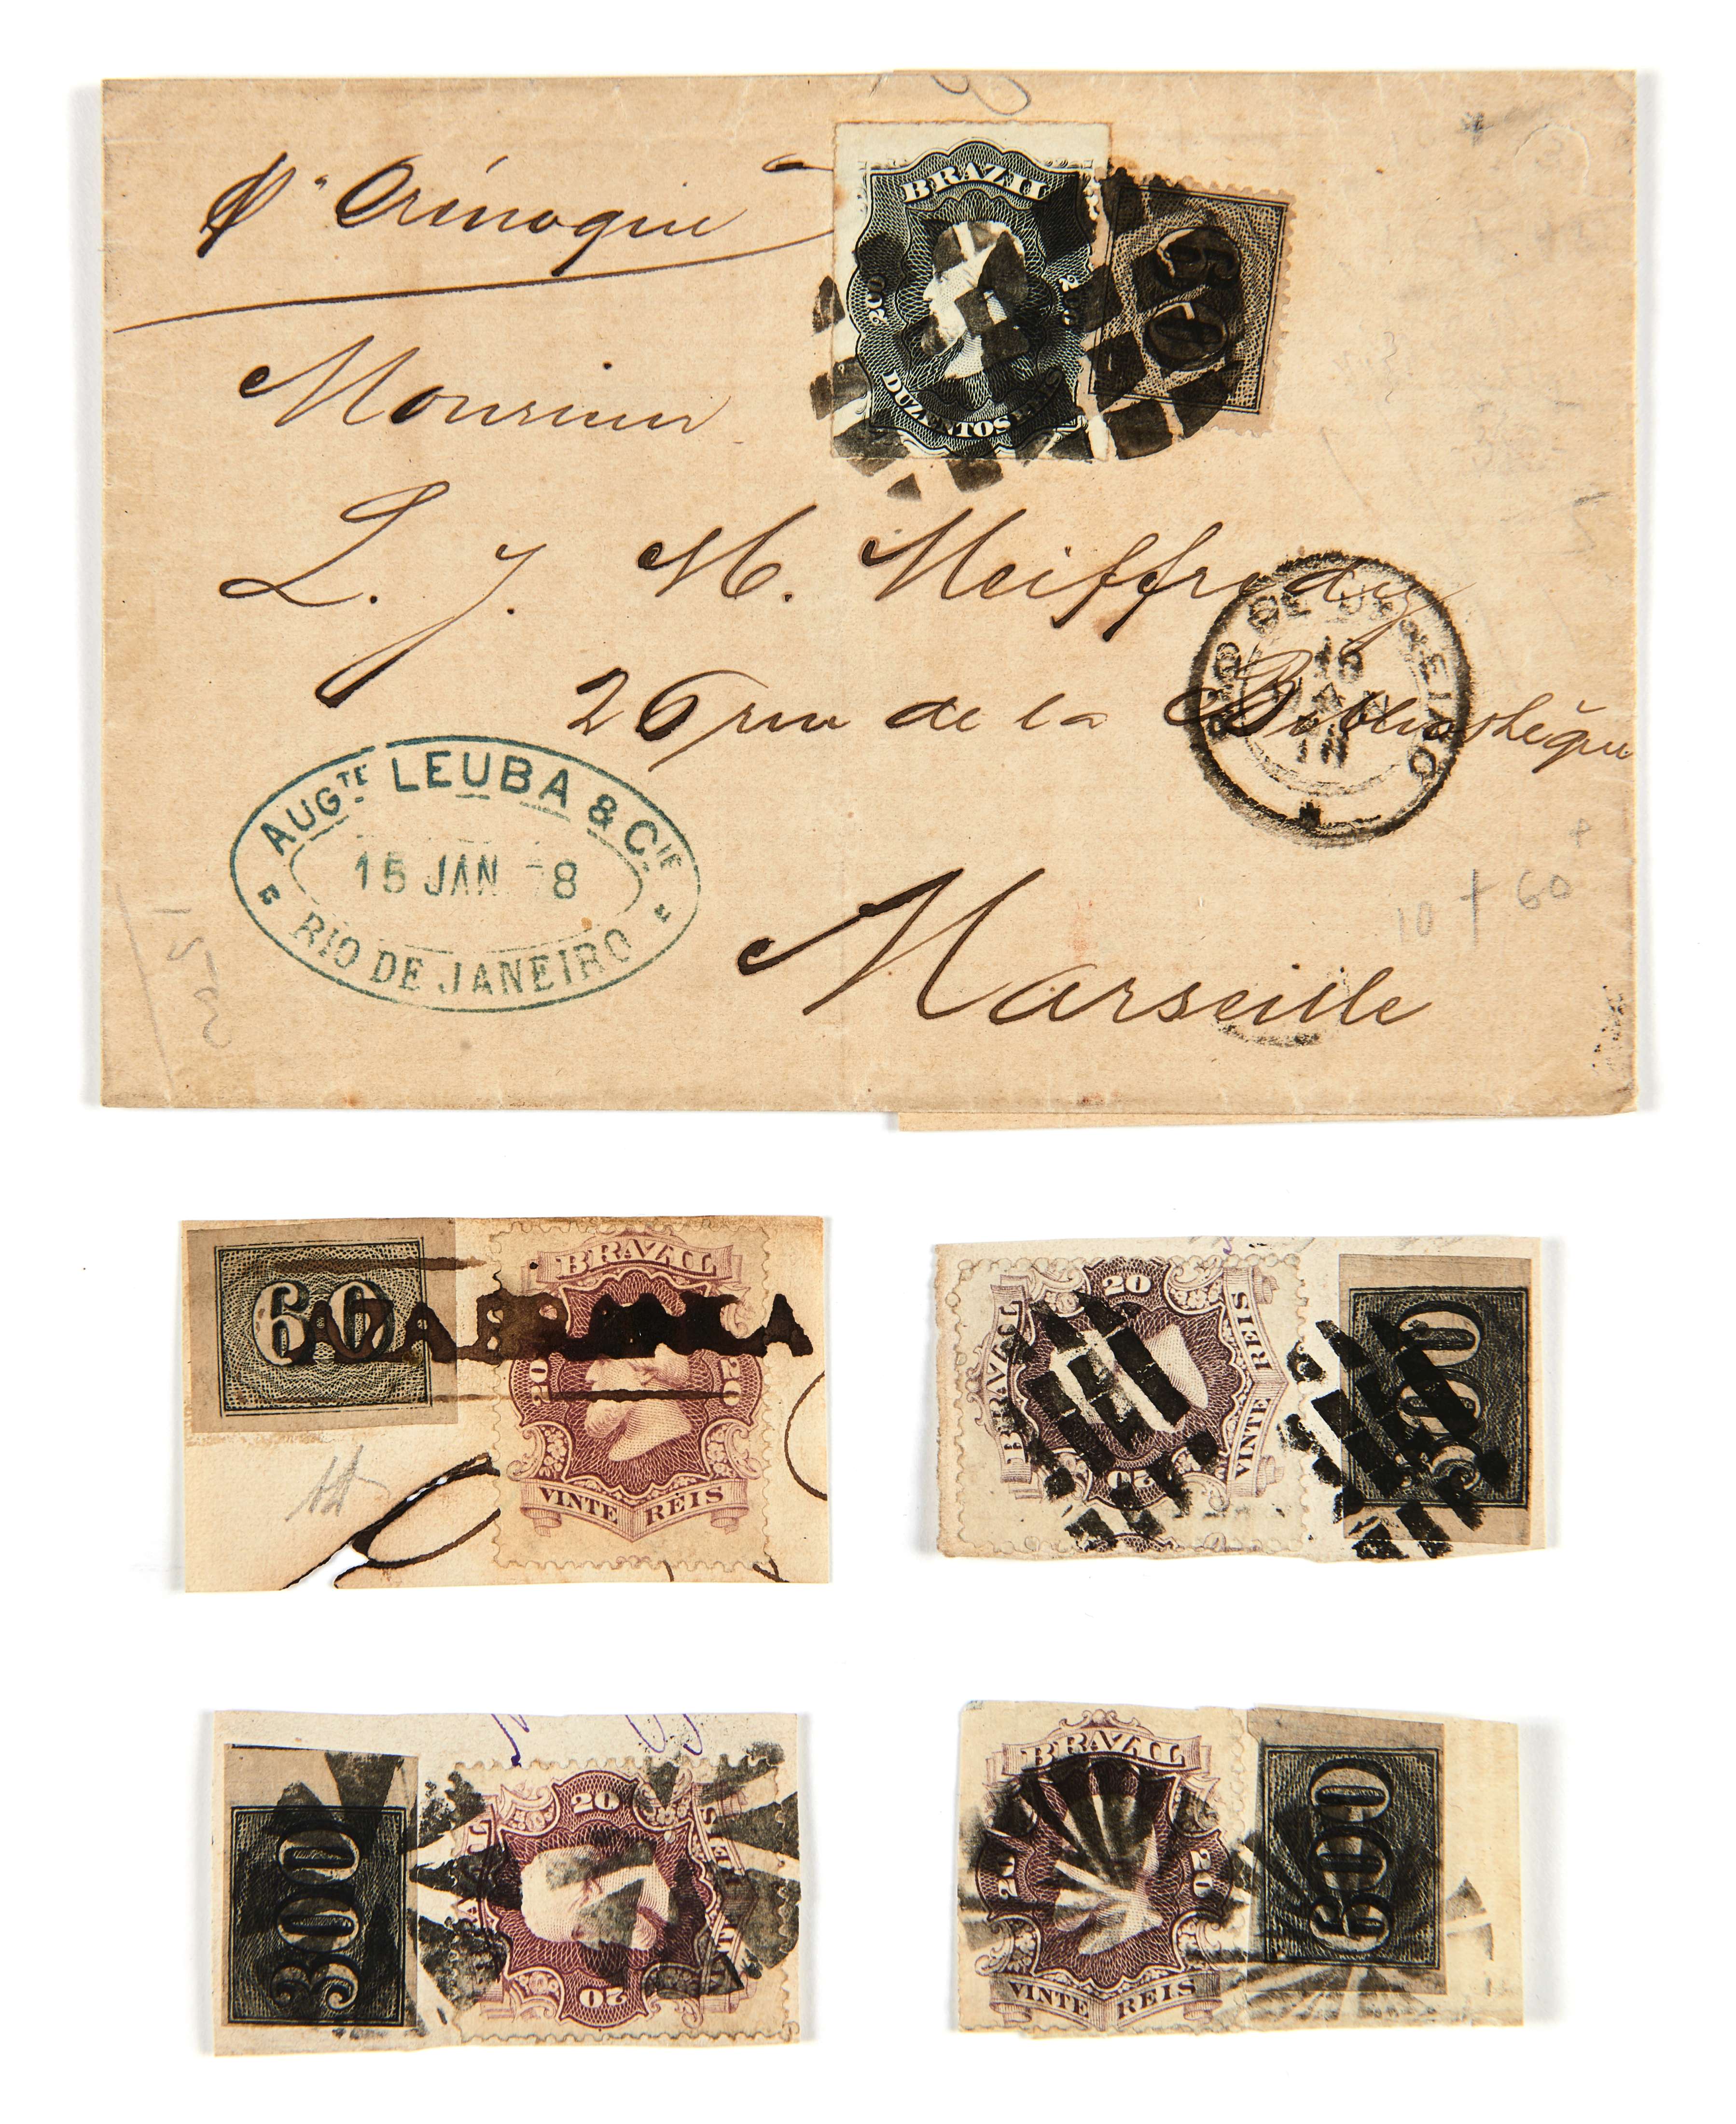 pr Orénoque
BRAZIL
200 200
DUZENTOS REIS
60
Monsieur
L. J. M. Meiffredy
26 rue de la Bibliothèque
Marseille
RIO DE JANEIRO
15
AUGTE LEUBA & CIE
15 JAN 78
RIO DE JANEIRO
10 + 60
60
BRAZIL
20 20
VINTE REIS
BRAZIL
20 20
VINTE REIS
300
300
20
20
BRAZIL
20 20
VINTE REIS
600